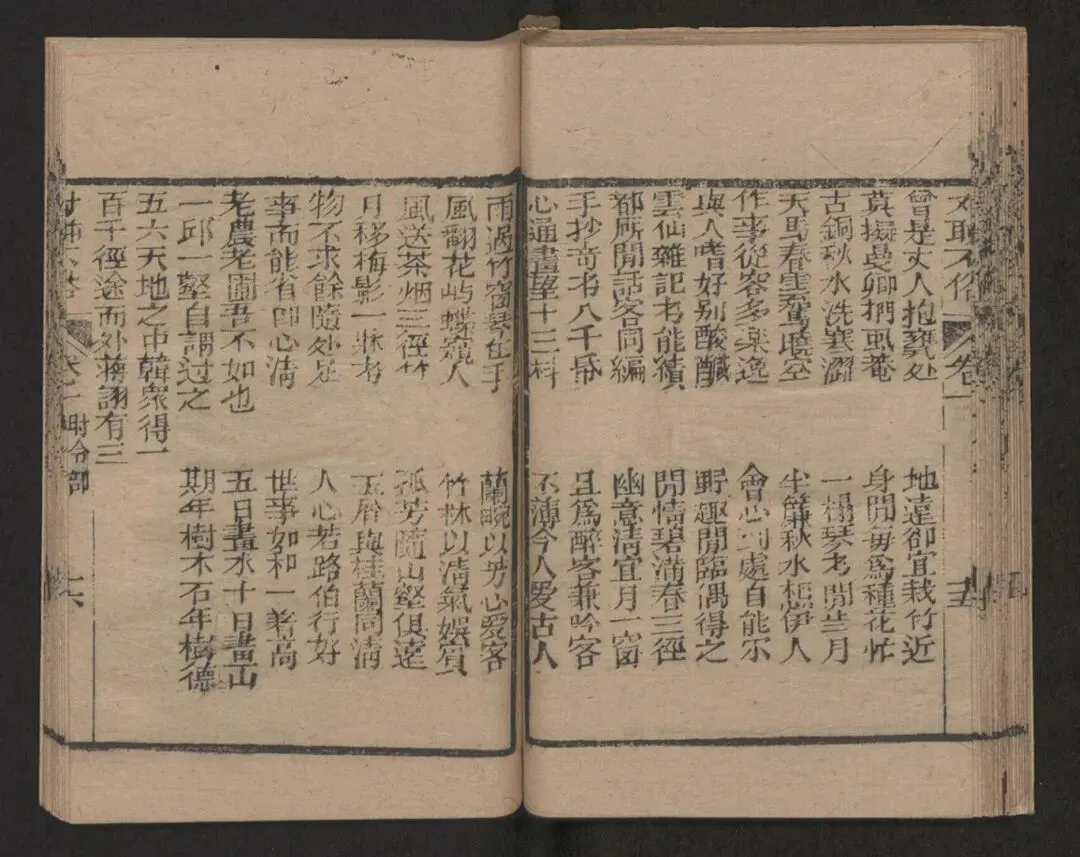 文取不俗 卷一
曾是丈人抱甕处
地遠卻宜栽竹近
莫擬曼卿捫虱菴
身閒毎爲種花忙
古銅秋水洗寒澀
一榻琴书閒丗月
天馬春雲曉空
坐簾秋水想伊人
作事從容多樂逸
會心到處自能乐
與人嗜好别酸鹹
野趣閒臨偶得之
雲仙雜記书能續
閒情碧滿春三徑
都厛閒話客同編
幽意清宜月一窗
手抄竒书八千
且爲醉客兼吟客
心通畫學十三科
不薄今人爱古人
雨竹窗琴在手
蘭畹以芳心愛客
風翻花屿蝶窺人
竹林以清氣娯賓
風送茶烟三徑竹
孤芳隨山壑俱遠
月移梅影一牀书
玉屑與桂蘭同清
物不求餘隨处足
人心若路伯行好
事而能省卽心清
世事如和一著高
老農老圃吾不如也
五日畫水十日畫山
一邱一壑自謂过之
期年樹木石年樹德
五六天地之中韓衆得一
百千徑途而外蔣詡有三
卷一 时令部 十六